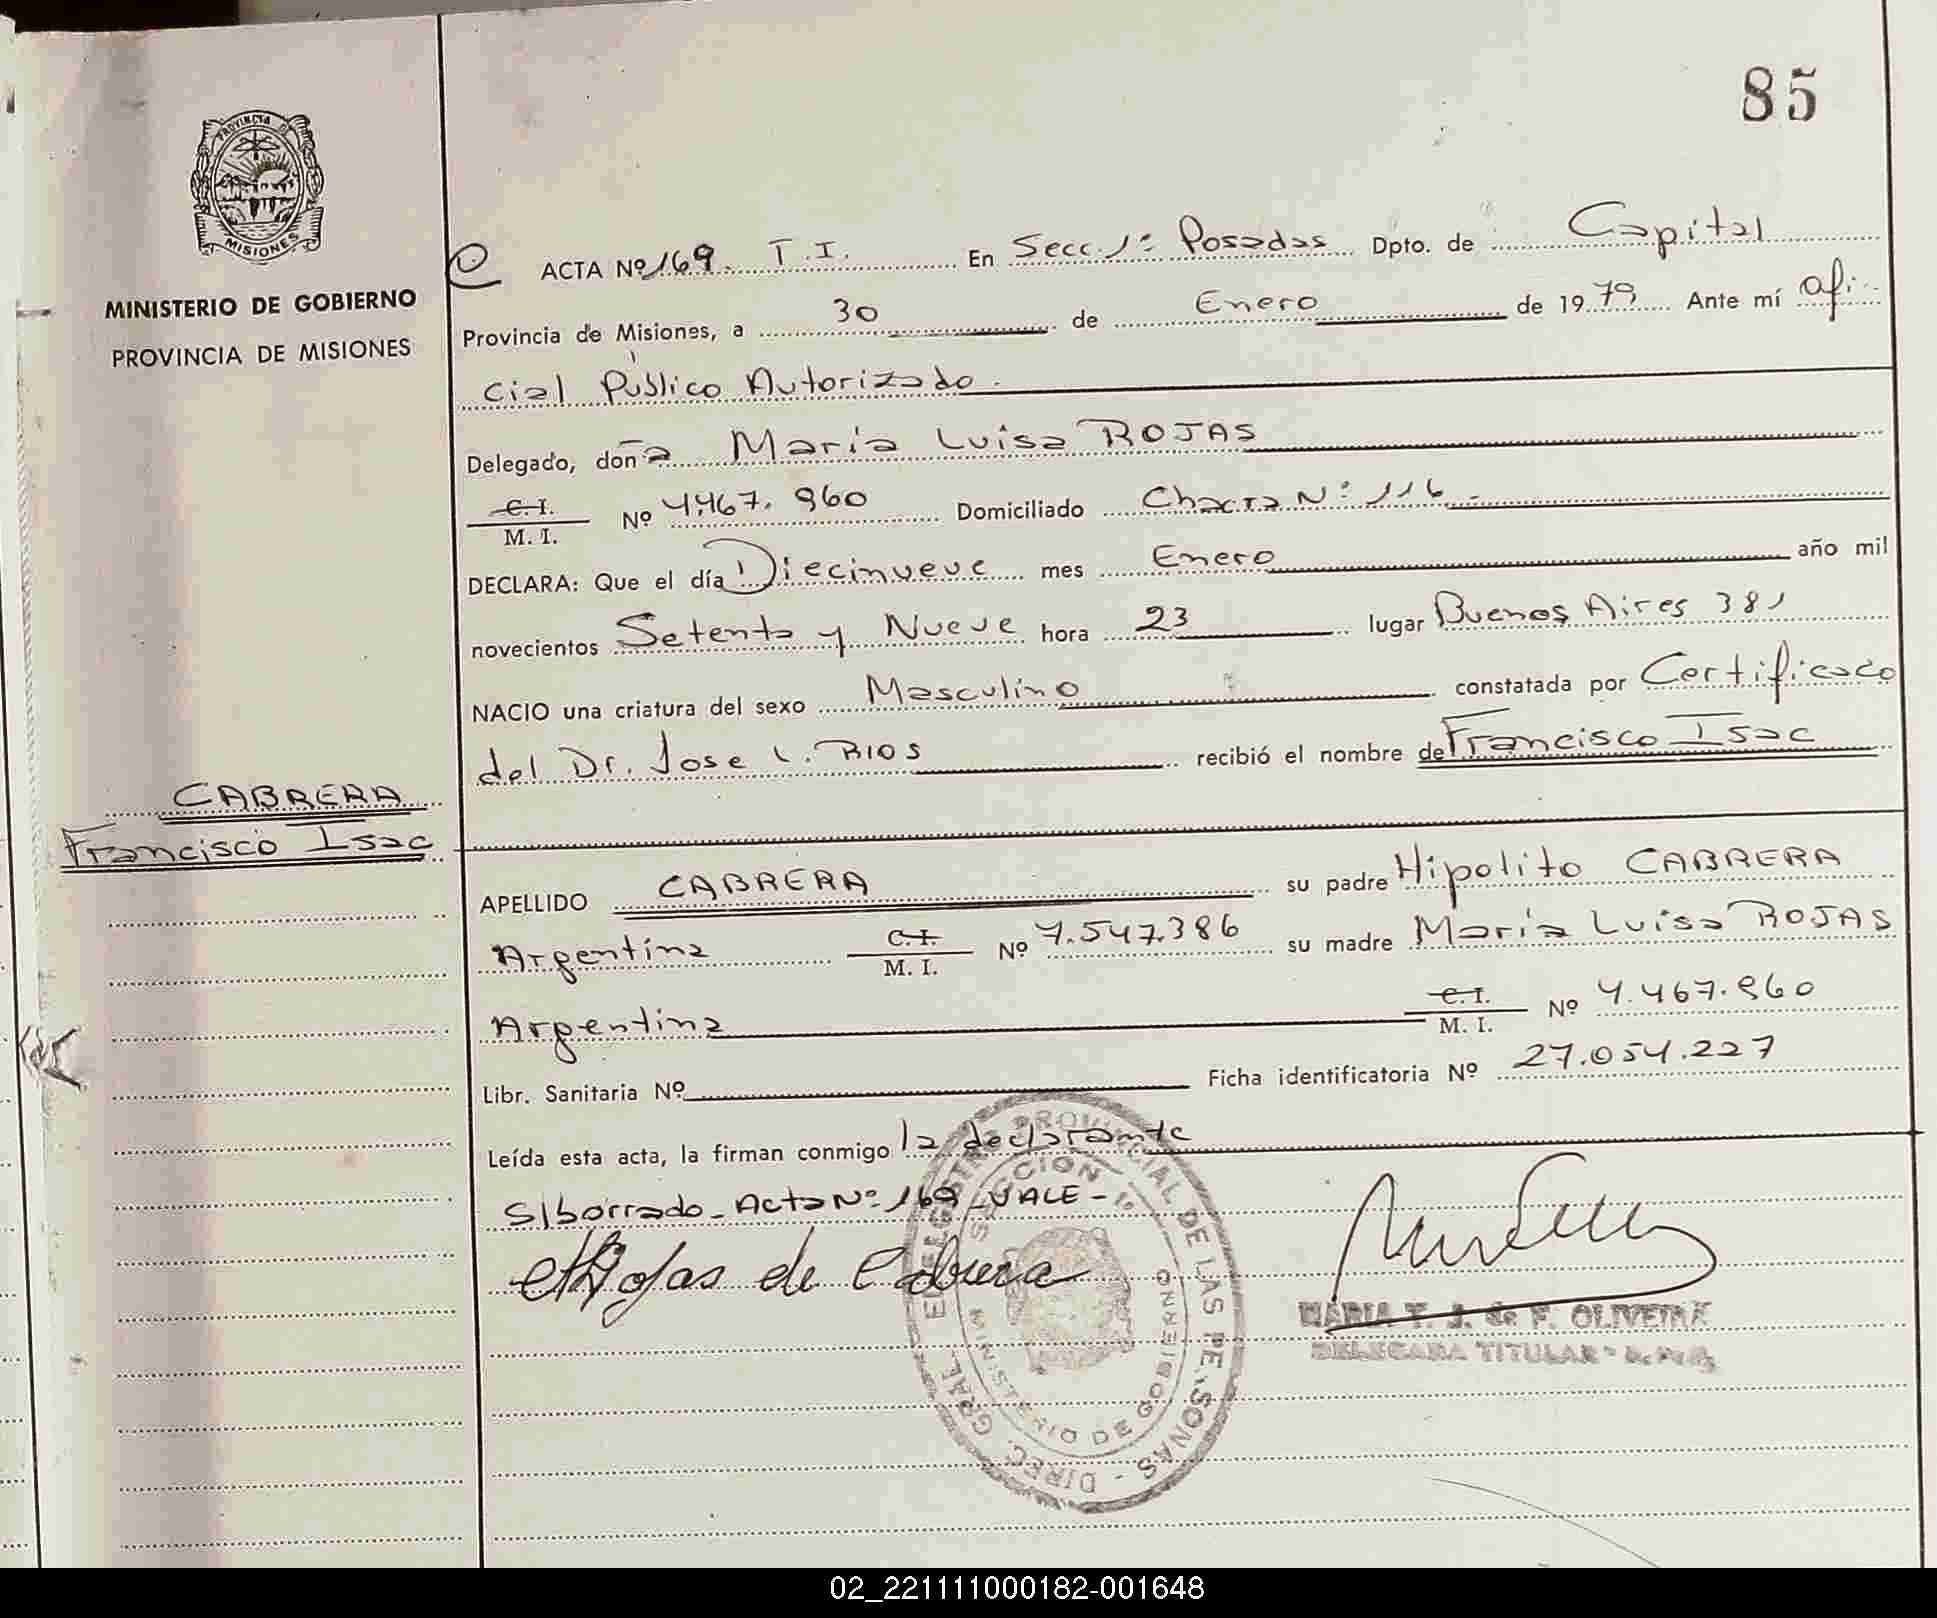 85
PROVINCIA DE
MISIONES
MINISTERIO DE GOBIERNO
PROVINCIA DE MISIONES
CABRERA
Francisco Isac
ACTA Nº 169. T.I. En Secc. 1º Posadas Dpto. de Capital
Provincia de Misiones, a 30 de Enero de 1979 Ante mí Ofi-
cial Público Autorizado.
Delegado, doña María Luisa ROJAS
C. I.
M. I. Nº 4.467.960 Domiciliado Chacra Nº 116.-
DECLARA: Que el día Diecinueve mes Enero año mil
novecientos Setenta y Nueve hora 23 lugar Buenos Aires 381
NACIO una criatura del sexo Masculino constatada por Certificado
del Dr. Jose L. RIOS recibió el nombre de Francisco Isac
APELLIDO CABRERA su padre Hipolito CABRERA
Argentina C. I. M. I. Nº 7.547.386 su madre María Luisa ROJAS
Argentina C. I. M. I. Nº 4.467.960
Libr. Sanitaria Nº Ficha identificatoria Nº 27.054.227
Leída esta acta, la firman conmigo la declarante
S/borrado - Acta Nº 169 - VALE -
Rojas de Cabrera
MARIA T. J. de F. OLIVEIRA
DELEGADA TITULAR
DIREC. GRAL. DEL REGISTRO PROVINCIAL DE LAS PERSONAS -
SECCION 1º
MINISTERIO DE GOBIERNO
02_221111000182-001648